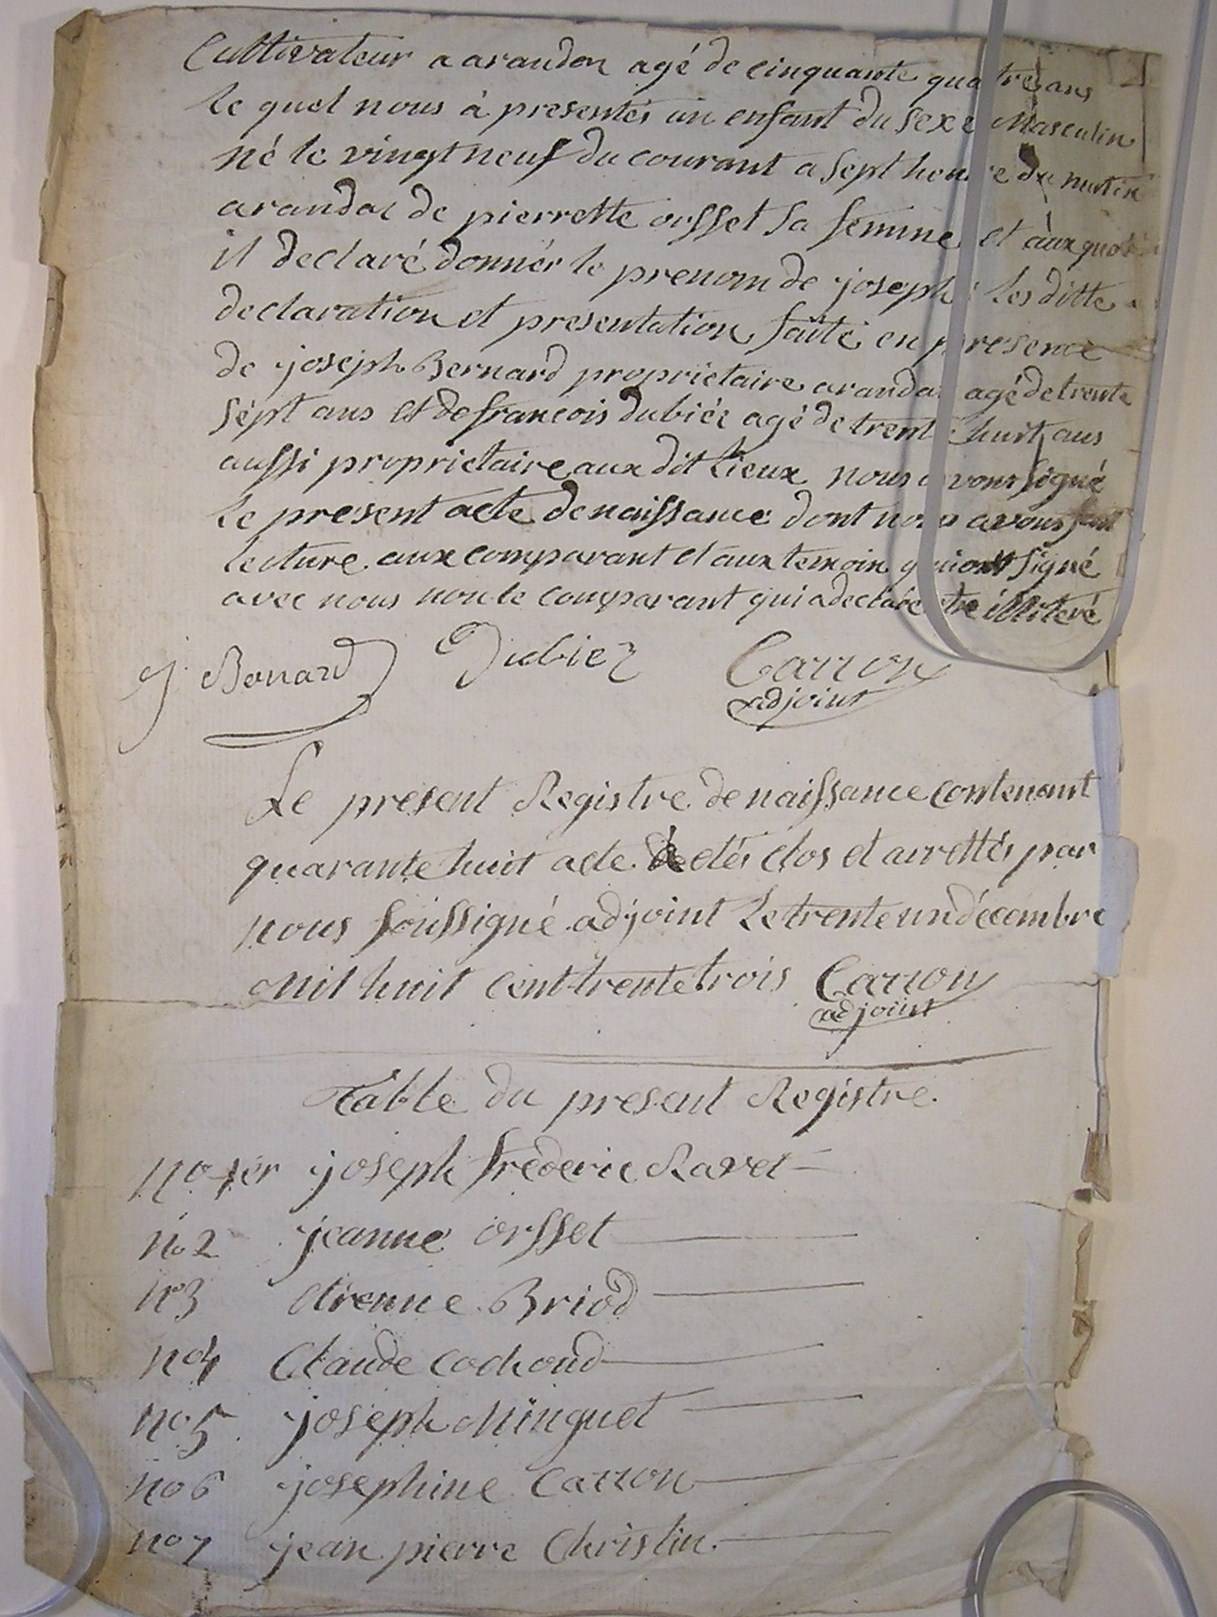 Cultivateur a arandon agé de cinquante quatre ans
le quel nous à presentés un enfant du sexe Masculin
né le vingt neuf du courant a sept heure du matin
arandoz de pierrette orsset sa femme et àux quel
il declaré donnér le prenom de joseph les ditte
declaration et presentation faite en presence
de joseph Bernard proprietaire arandas agé de trente
sept ans et de francois dubiéz agé de trente huit ans
aussi proprietaire aux dit lieux nous avons signé
le present acte de naissance dont nous avons fait
lecture aux comparant et aux temoin qui ont signé
avec nous non le comparant qui a declaré etre illiteré
J. Bonard Dubiez Carron
adjoint
Le present Registre de naissance contenant
quarante huit acte à etés clos et arrettés par
nous soussigné adjoint le trente un décembre
Mil huit cent trente trois Carron
adjoint
Table du present Registre
no 1er joseph frederic Ravet
no 2 jeanne orsset
no 3 etienne Briod
no 4 Claude Cochoud
no 5 joseph Minguet
no 6 josephine Carron
no 7 jean pierre Christin